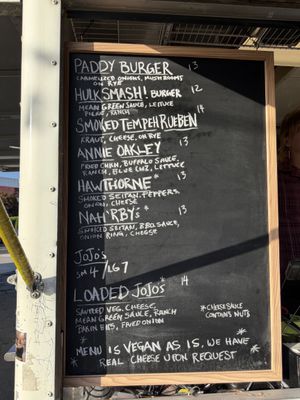 PADDY BURGER 13
CARAMELIZED ONIONS, MUSHROOMS
ON RYE
HULK SMASH! BURGER 12
MEAN GREEN SAUCE, LETTUCE
PICKLE, RANCH
SMOKED TEMPEH RUEBEN 14
KRAUT, CHEESE, ON RYE
ANNIE OAKLEY 13
FRIED CHKN, BUFFALO SAUCE,
RANCH, BLEU CHZ, LETTUCE
HAWTHORNE* 13
SMOKED SEITAN, PEPPERS,
ONION, CHEESE
NAH'RBYS* 13
SMOKED SEITAN, BBQ SAUCE,
ONION RING, CHEESE
JOJO'S
SM 4/LG 7
LOADED JOJOS* 14
SMOKED VEG, CHEESE,
MEAN GREEN SAUCE, RANCH
BAKIN BITS, FRIED ONION
*CHEESE SAUCE
CONTAINS NUTS
* MENU IS VEGAN AS IS, WE HAVE *
REAL CHEESE UPON REQUEST